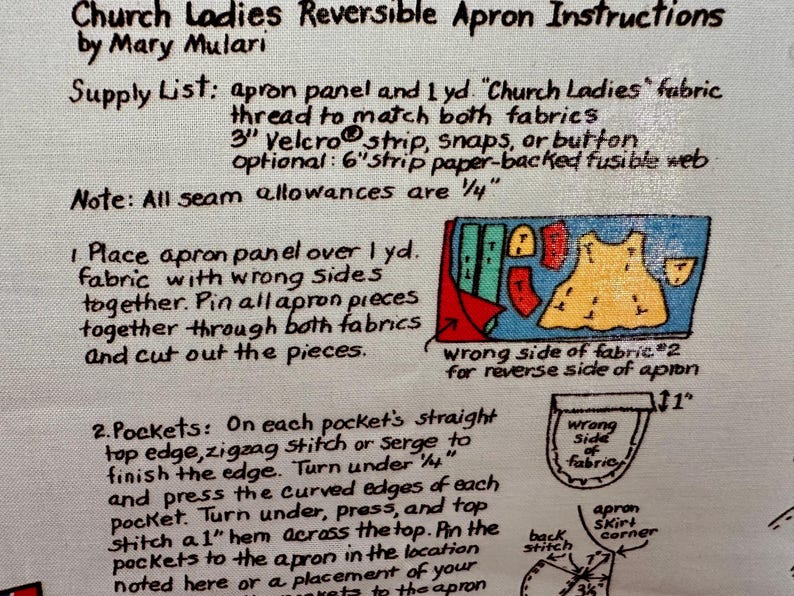 Church Ladies Reversible Apron Instructions
by Mary Mulari
Supply List: apron panel and 1 yd. "Church Ladies" fabric
thread to match both fabrics
3" Velcro® strip, snaps, or button
optional: 6" strip paper-backed fusible web
Note: All seam allowances are 1/4"
1. Place apron panel over 1 yd.
fabric with wrong sides
together. Pin all apron pieces
together through both fabrics
and cut out the pieces.
wrong side of fabric #2
for reverse side of apron
2. Pockets: On each pocket's straight
top edge, zigzag stitch or serge to
finish the edge. Turn under 1/4"
and press the curved edges of each
pocket. Turn under, press, and top
stitch a 1" hem across the top. Pin the
pockets to the apron in the location
noted here or a placement of your
to the apron
1"
wrong
side
of
fabric
apron
skirt
corner
back
stitch
7"